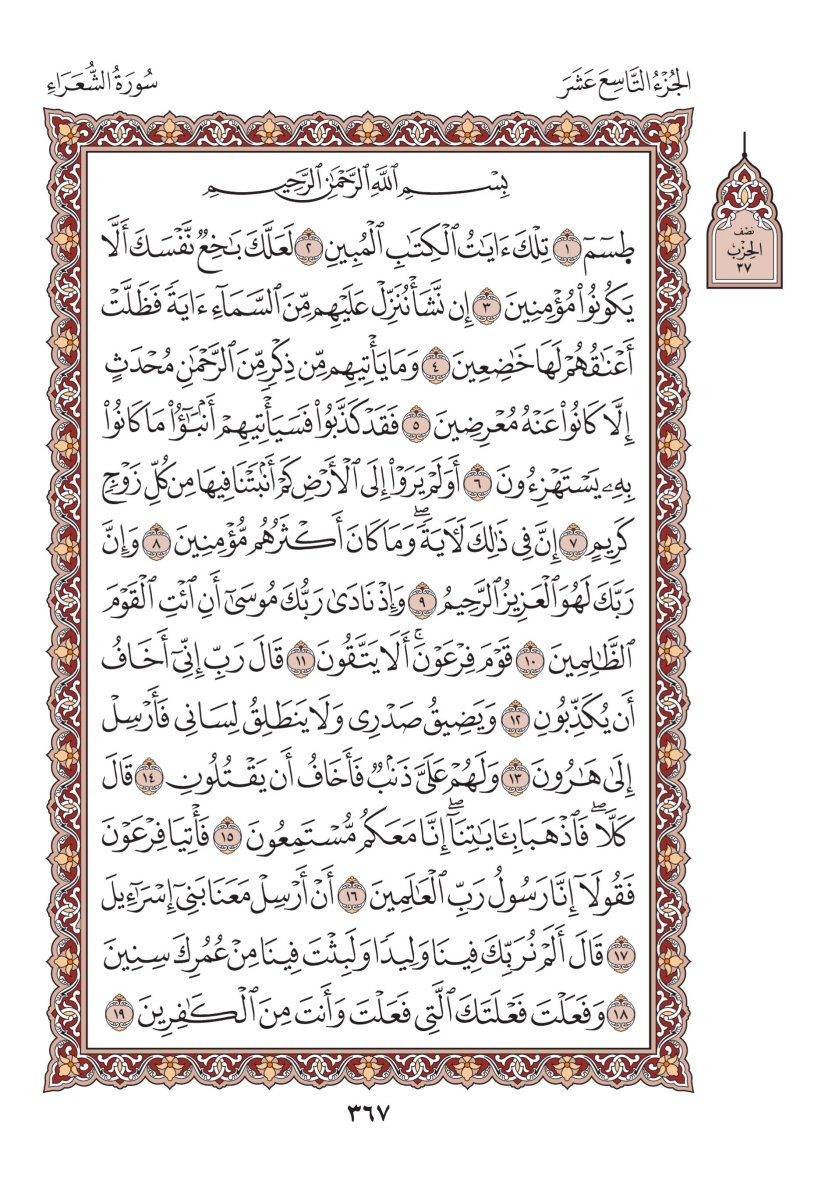 الجُزْءُ التَّاسِعَ عَشَرَ
سُورَةُ الشُّعَرَاءِ
نصْف
الحِزْب
٣٧
بِسْمِ ٱللَّهِ ٱلرَّحْمَٰنِ ٱلرَّحِيمِ
طسٓمٓ ١ تِلْكَ ءَايَٰتُ ٱلْكِتَٰبِ ٱلْمُبِينِ ٢ لَعَلَّكَ بَٰخِعٌ نَّفْسَكَ أَلَّا
يَكُونُوا۟ مُؤْمِنِينَ ٣ إِن نَّشَأْ نُنَزِّلْ عَلَيْهِم مِّنَ ٱلسَّمَآءِ ءَايَةً فَظَلَّتْ
أَعْنَٰقُهُمْ لَهَا خَٰضِعِينَ ٤ وَمَا يَأْتِيهِم مِّن ذِكْرٍ مِّنَ ٱلرَّحْمَٰنِ مُحْدَثٍ
إِلَّا كَانُوا۟ عَنْهُ مُعْرِضِينَ ٥ فَقَدْ كَذَّبُوا۟ فَسَيَأْتِيهِمْ أَنۢبَٰٓؤُا۟ مَا كَانُوا۟
بِهِۦ يَسْتَهْزِءُونَ ٦ أَوَلَمْ يَرَوْا۟ إِلَى ٱلْأَرْضِ كَمْ أَنۢبَتْنَا فِيهَا مِن كُلِّ زَوْجٍ
كَرِيمٍ ٧ إِنَّ فِى ذَٰلِكَ لَءَايَةً ۖ وَمَا كَانَ أَكْثَرُهُم مُّؤْمِنِينَ ٨ وَإِنَّ
رَبَّكَ لَهُوَ ٱلْعَزِيزُ ٱلرَّحِيمُ ٩ وَإِذْ نَادَىٰ رَبُّكَ مُوسَىٰٓ أَنِ ٱئْتِ ٱلْقَوْمَ
ٱلظَّٰلِمِينَ ١٠ قَوْمَ فِرْعَوْنَ ۚ أَلَا يَتَّقُونَ ١١ قَالَ رَبِّ إِنِّىٓ أَخَافُ
أَن يُكَذِّبُونِ ١٢ وَيَضِيقُ صَدْرِى وَلَا يَنطَلِقُ لِسَانِى فَأَرْسِلْ
إِلَىٰ هَٰرُونَ ١٣ وَلَهُمْ عَلَىَّ ذَنۢبٌ فَأَخَافُ أَن يَقْتُلُونِ ١٤ قَالَ
كَلَّا ۖ فَٱذْهَبَا بِـَٔايَٰتِنَآ ۖ إِنَّا مَعَكُم مُّسْتَمِعُونَ ١٥ فَأْتِيَا فِرْعَوْنَ
فَقُولَآ إِنَّا رَسُولُ رَبِّ ٱلْعَٰلَمِينَ ١٦ أَنْ أَرْسِلْ مَعَنَا بَنِىٓ إِسْرَٰٓءِيلَ
١٧ قَالَ أَلَمْ نُرَبِّكَ فِينَا وَلِيدًا وَلَبِثْتَ فِينَا مِنْ عُمُرِكَ سِنِينَ
١٨ وَفَعَلْتَ فَعْلَتَكَ ٱلَّتِى فَعَلْتَ وَأَنتَ مِنَ ٱلْكَٰفِرِينَ ١٩
٣٦٧